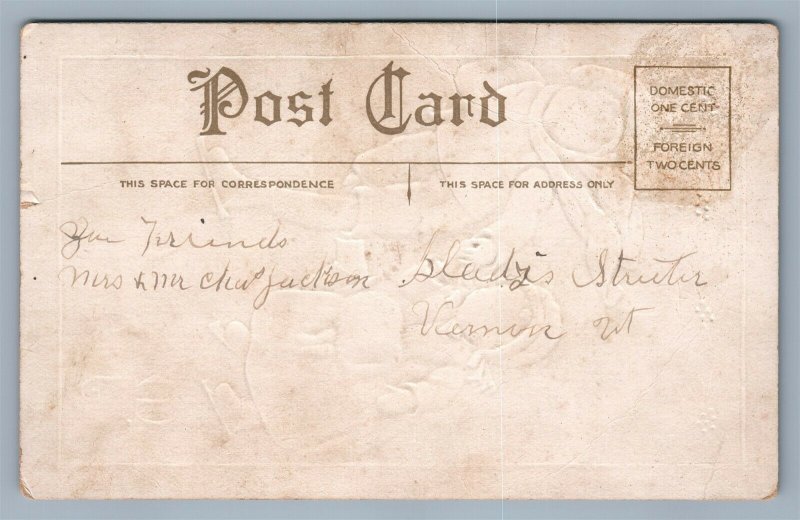 Post Card
DOMESTIC
ONE CENT
FOREIGN
TWO CENTS
THIS SPACE FOR CORRESPONDENCE
THIS SPACE FOR ADDRESS ONLY
Friends
Mrs & Mr Chas Jackson
Gladys Streeter
Vernon Vt